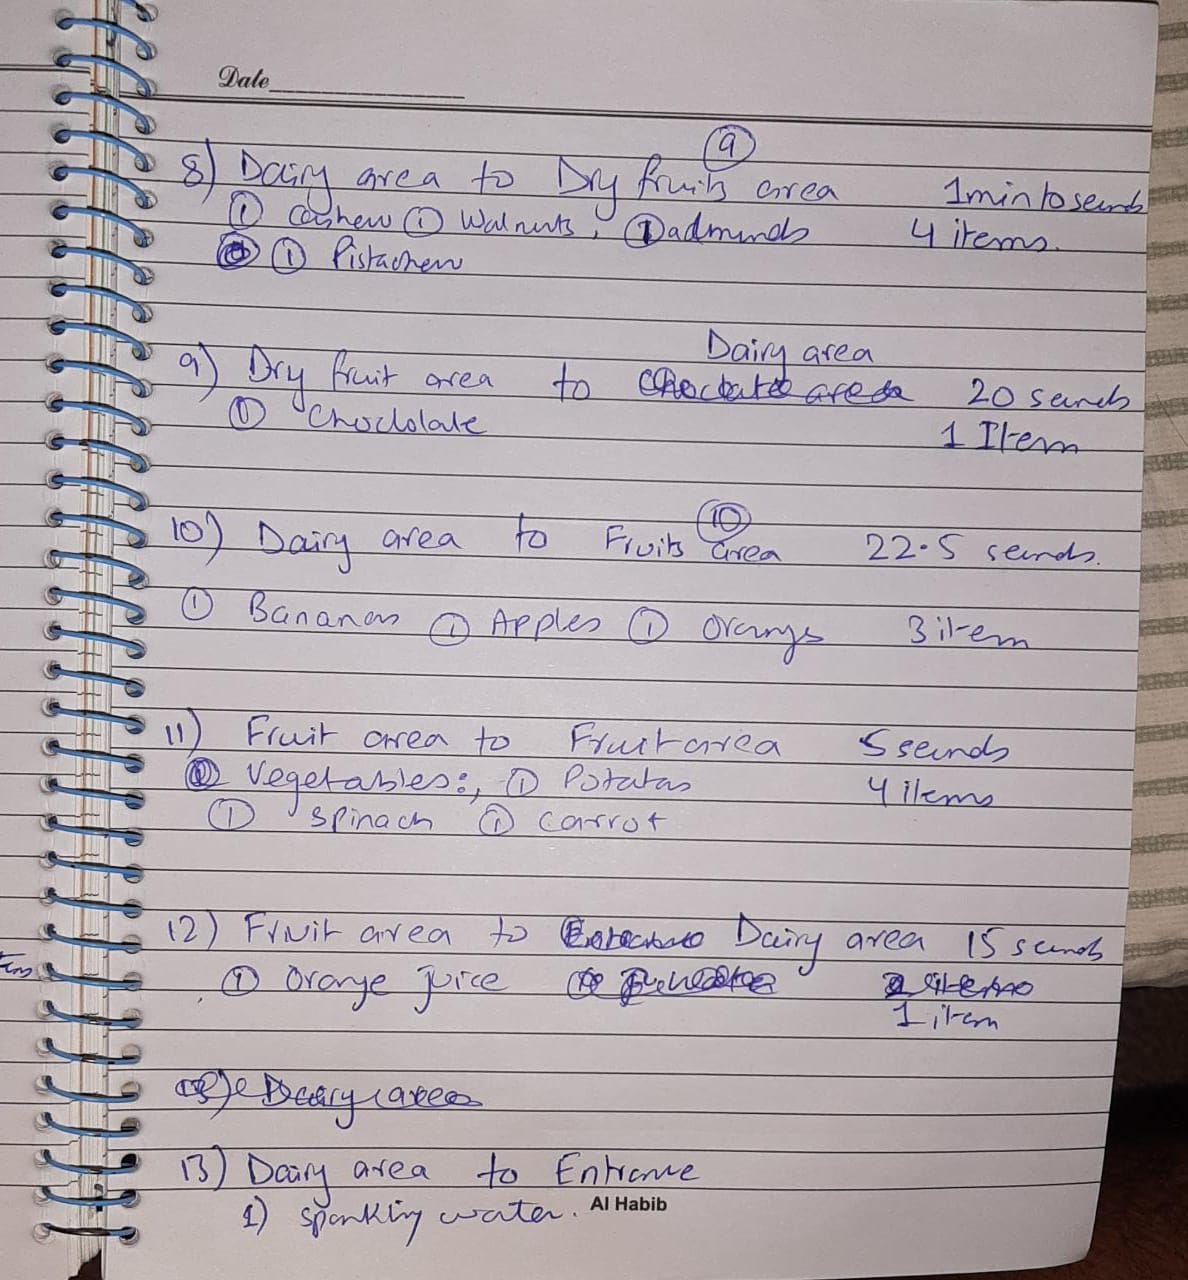 Date
9
8) Dairy area to Dry fruits area 1 min 10 seconds
① Cashew ① Walnuts, ① admunds 4 items.
① Pistachew
Dairy area
9) Dry fruit area to Choclate area 20 seconds
① Choclolate 1 Item
10
10) Dairy area to Fruits area 22.5 seconds.
① Bananas ① Apples ① Orangs 3 item
11) Fruit area to Fruit area 5 seconds
① Vegetables:, ① Potatas 4 items
① Spinach ① Carrot
12) Fruit area to Dairy area 15 seconds
① Orange juice 2 items
1 item
Dairy area
13) Dairy area to Entrance
1) Sparkling water.
Al Habib